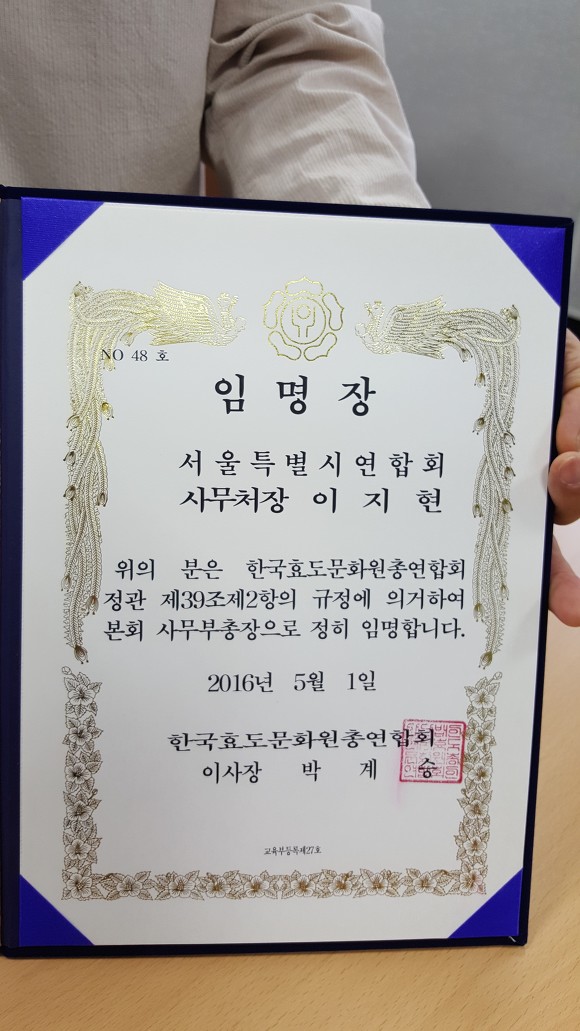 NO 48 호
임명장
서울특별시연합회
사무처장 이지현
위의 분은 한국효도문화원총연합회
정관 제39조제2항의 규정에 의거하여
본회 사무부총장으로 정히 임명합니다.
2016년 5월 1일
한국효도문화원총연합회
이사장 박계승
교육부등록제27호